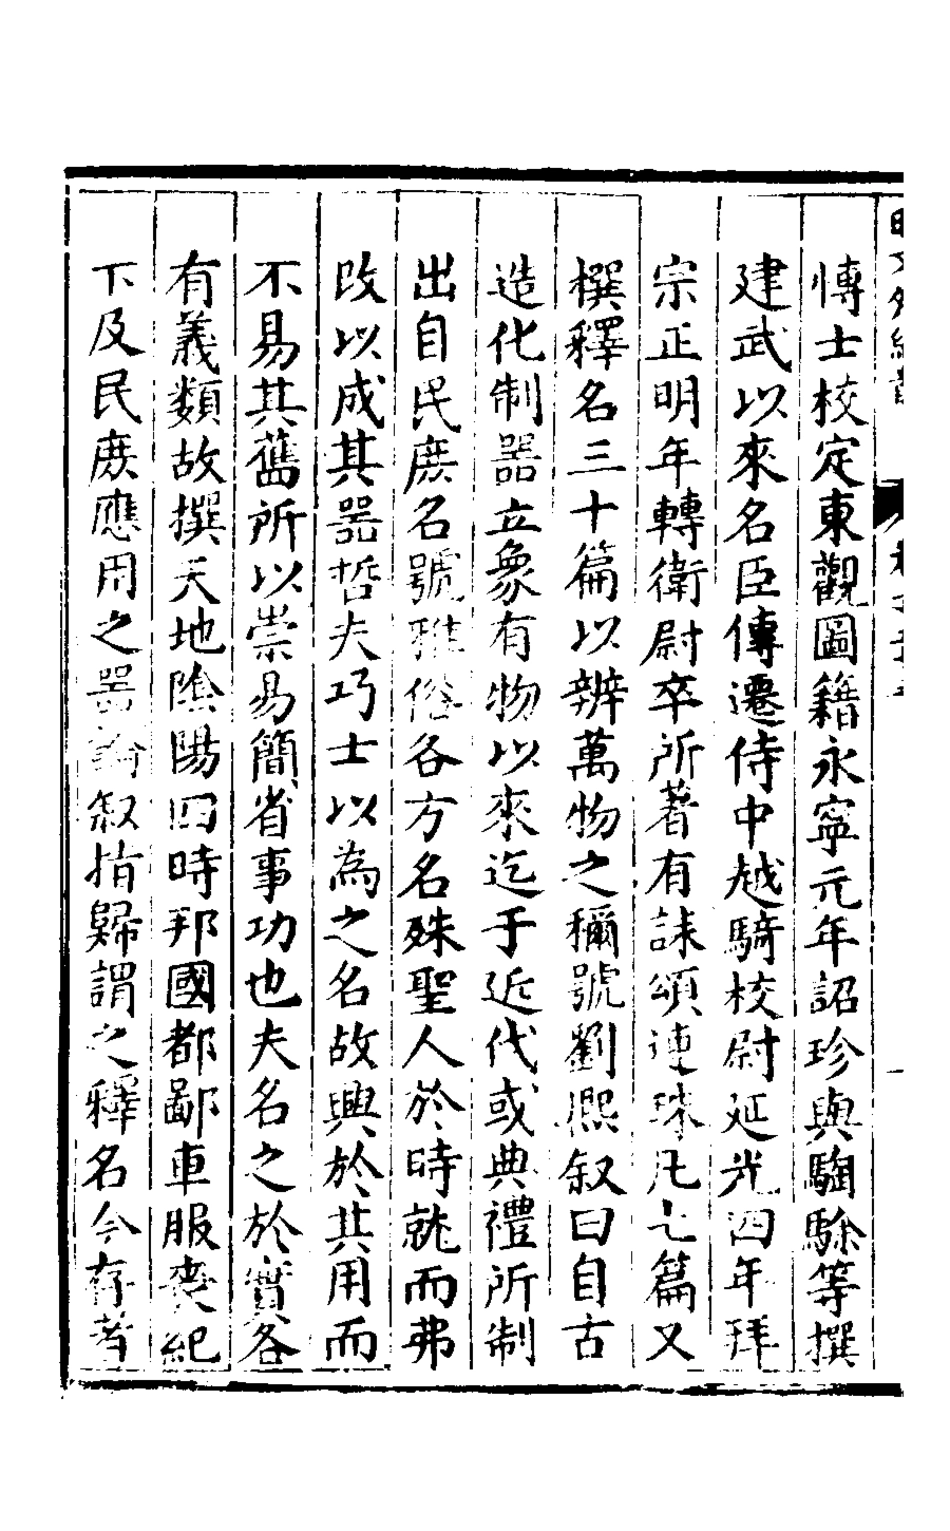 愽士校定東觀圖籍永寧元年詔珍與騊駼等撰
建武以來名臣傳遷侍中越騎校尉延光四年拜
宗正明年轉衛尉卒所著有誄頌連珠凡七篇又
撰釋名三十篇以辨萬物之稱號劉熈叙曰自古
造化制器立象有物以來迄于近代或典禮所制
出自民庻名號雅俗各方名殊聖人於時就而弗
改以成其器哲夫巧士以為之名故興於其用而
不易其舊所以崇易簡省事功也夫名之於實各
有義類故撰天地陰陽四時邦國都鄙車服喪紀
下及民庻應用之器論叙指歸謂之釋名今存者